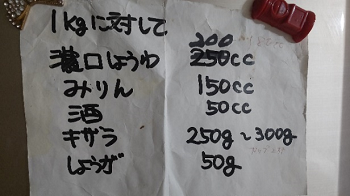 1kgに対して
200
濃口しょうゆ 250cc
みりん 150cc
酒 50cc
キザラ 250g～300g
しょうが 50g